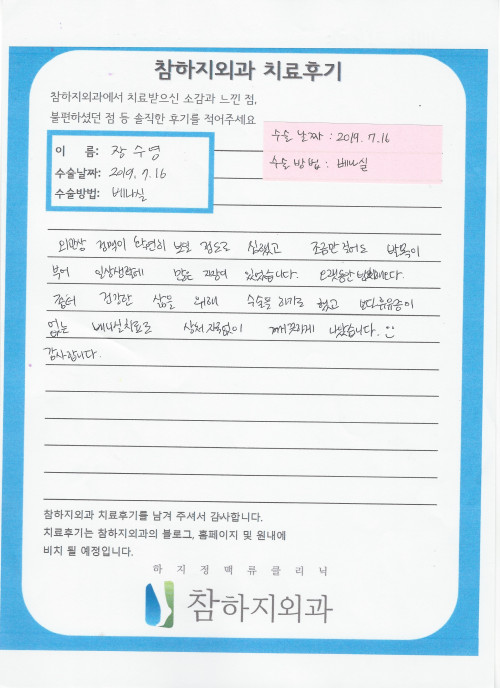 참하지외과 치료후기
참하지외과에서 치료받으신 소감과 느낀 점,
불편하셨던 점 등 솔직한 후기를 적어주세요
이 름: 장수영
수술날짜: 2019. 7. 16
수술방법: 베나실
수술 날짜 : 2019. 7. 16
수술 방법 : 베나실
외관상 정맥이 확연히 보일 정도로 심했고 조금만 걸어도 발목이
부어 일상생활에 많은 지장이 있었습니다.
좀더 건강한 삶을 위해 수술을 하기로 했고 보다 후유증이
없는 베나실치료로 상처 자국없이 깨끗하게 나았습니다.
감사합니다.
참하지외과 치료후기를 남겨 주셔서 감사합니다.
치료후기는 참하지외과의 블로그, 홈페이지 및 원내에
비치 될 예정입니다.
하지정맥류클리닉
참하지외과